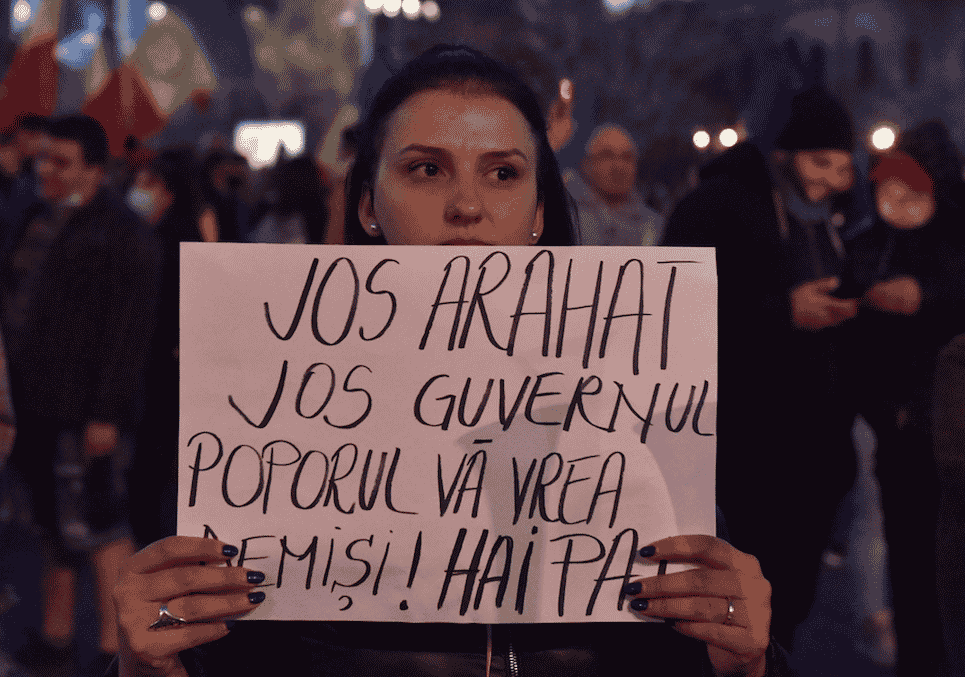 JOS ARAHAT
JOS GUVERNUL
POPORUL VĂ VREA
DEMIȘI! HAI PA